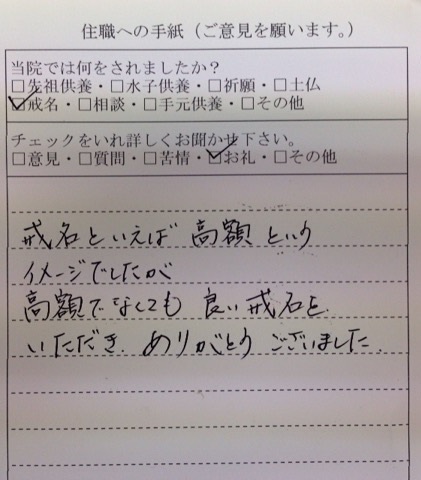 住職への手紙（ご意見を願います。）
当院では何をされましたか？
□先祖供養・□水子供養・□祈願・□土仏
☑戒名・□相談・□手元供養・□その他
チェックをいれ詳しくお聞かせ下さい。
□意見・□質問・□苦情・☑お礼・□その他
戒名といえば 高額 という
イメージでしたが
高額でなくても 良い戒名を
いただき ありがとう ございました.